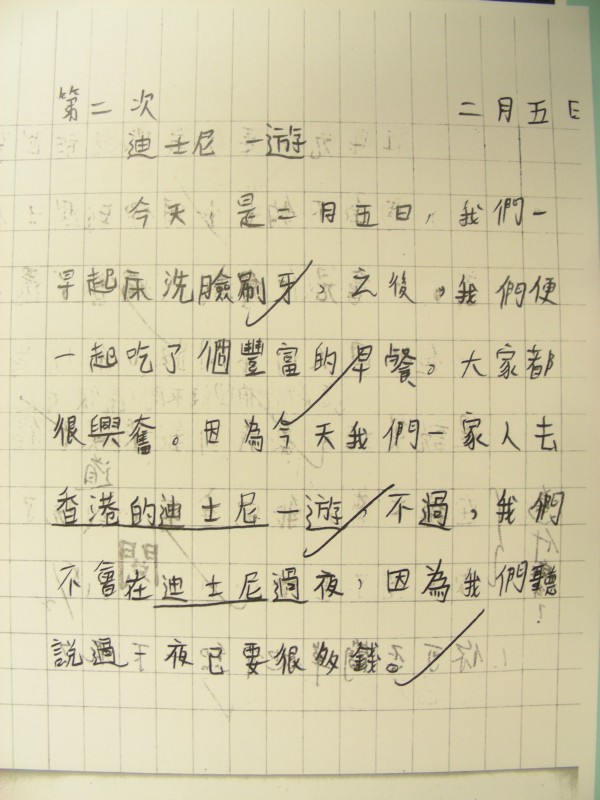 第二次 二月五日
迪士尼一遊
今天，是二月五日，我們一
早起床洗臉刷牙，之後，我們便
一起吃了個豐富的早餐。大家都
很興奮。因為今天我們一家人去
香港的迪士尼一遊，不過，我們
不會在迪士尼過夜，因為我們聽
說過一夜已要很多錢。